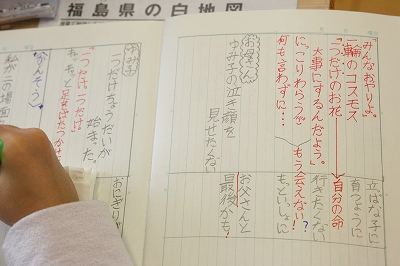 福島県の白地図
みんなおやりよ。
一輪のコスモス
「一つだけのお花、
大事にするんだよう。」
にっこりわらうぞ
何も言わずに・・・
自分の命
もう会えない!
立ぱな子に
育つように
行きたくない
もっといっしょに
お父さんと
最後かも!
お母さん
ゆみ子の泣き顔を
見せたくない
ゆみ子
一つだけちょうだいが
始まった。
「一つだけ一つだけ」
おにぎりが
かんそう
私が二の場面